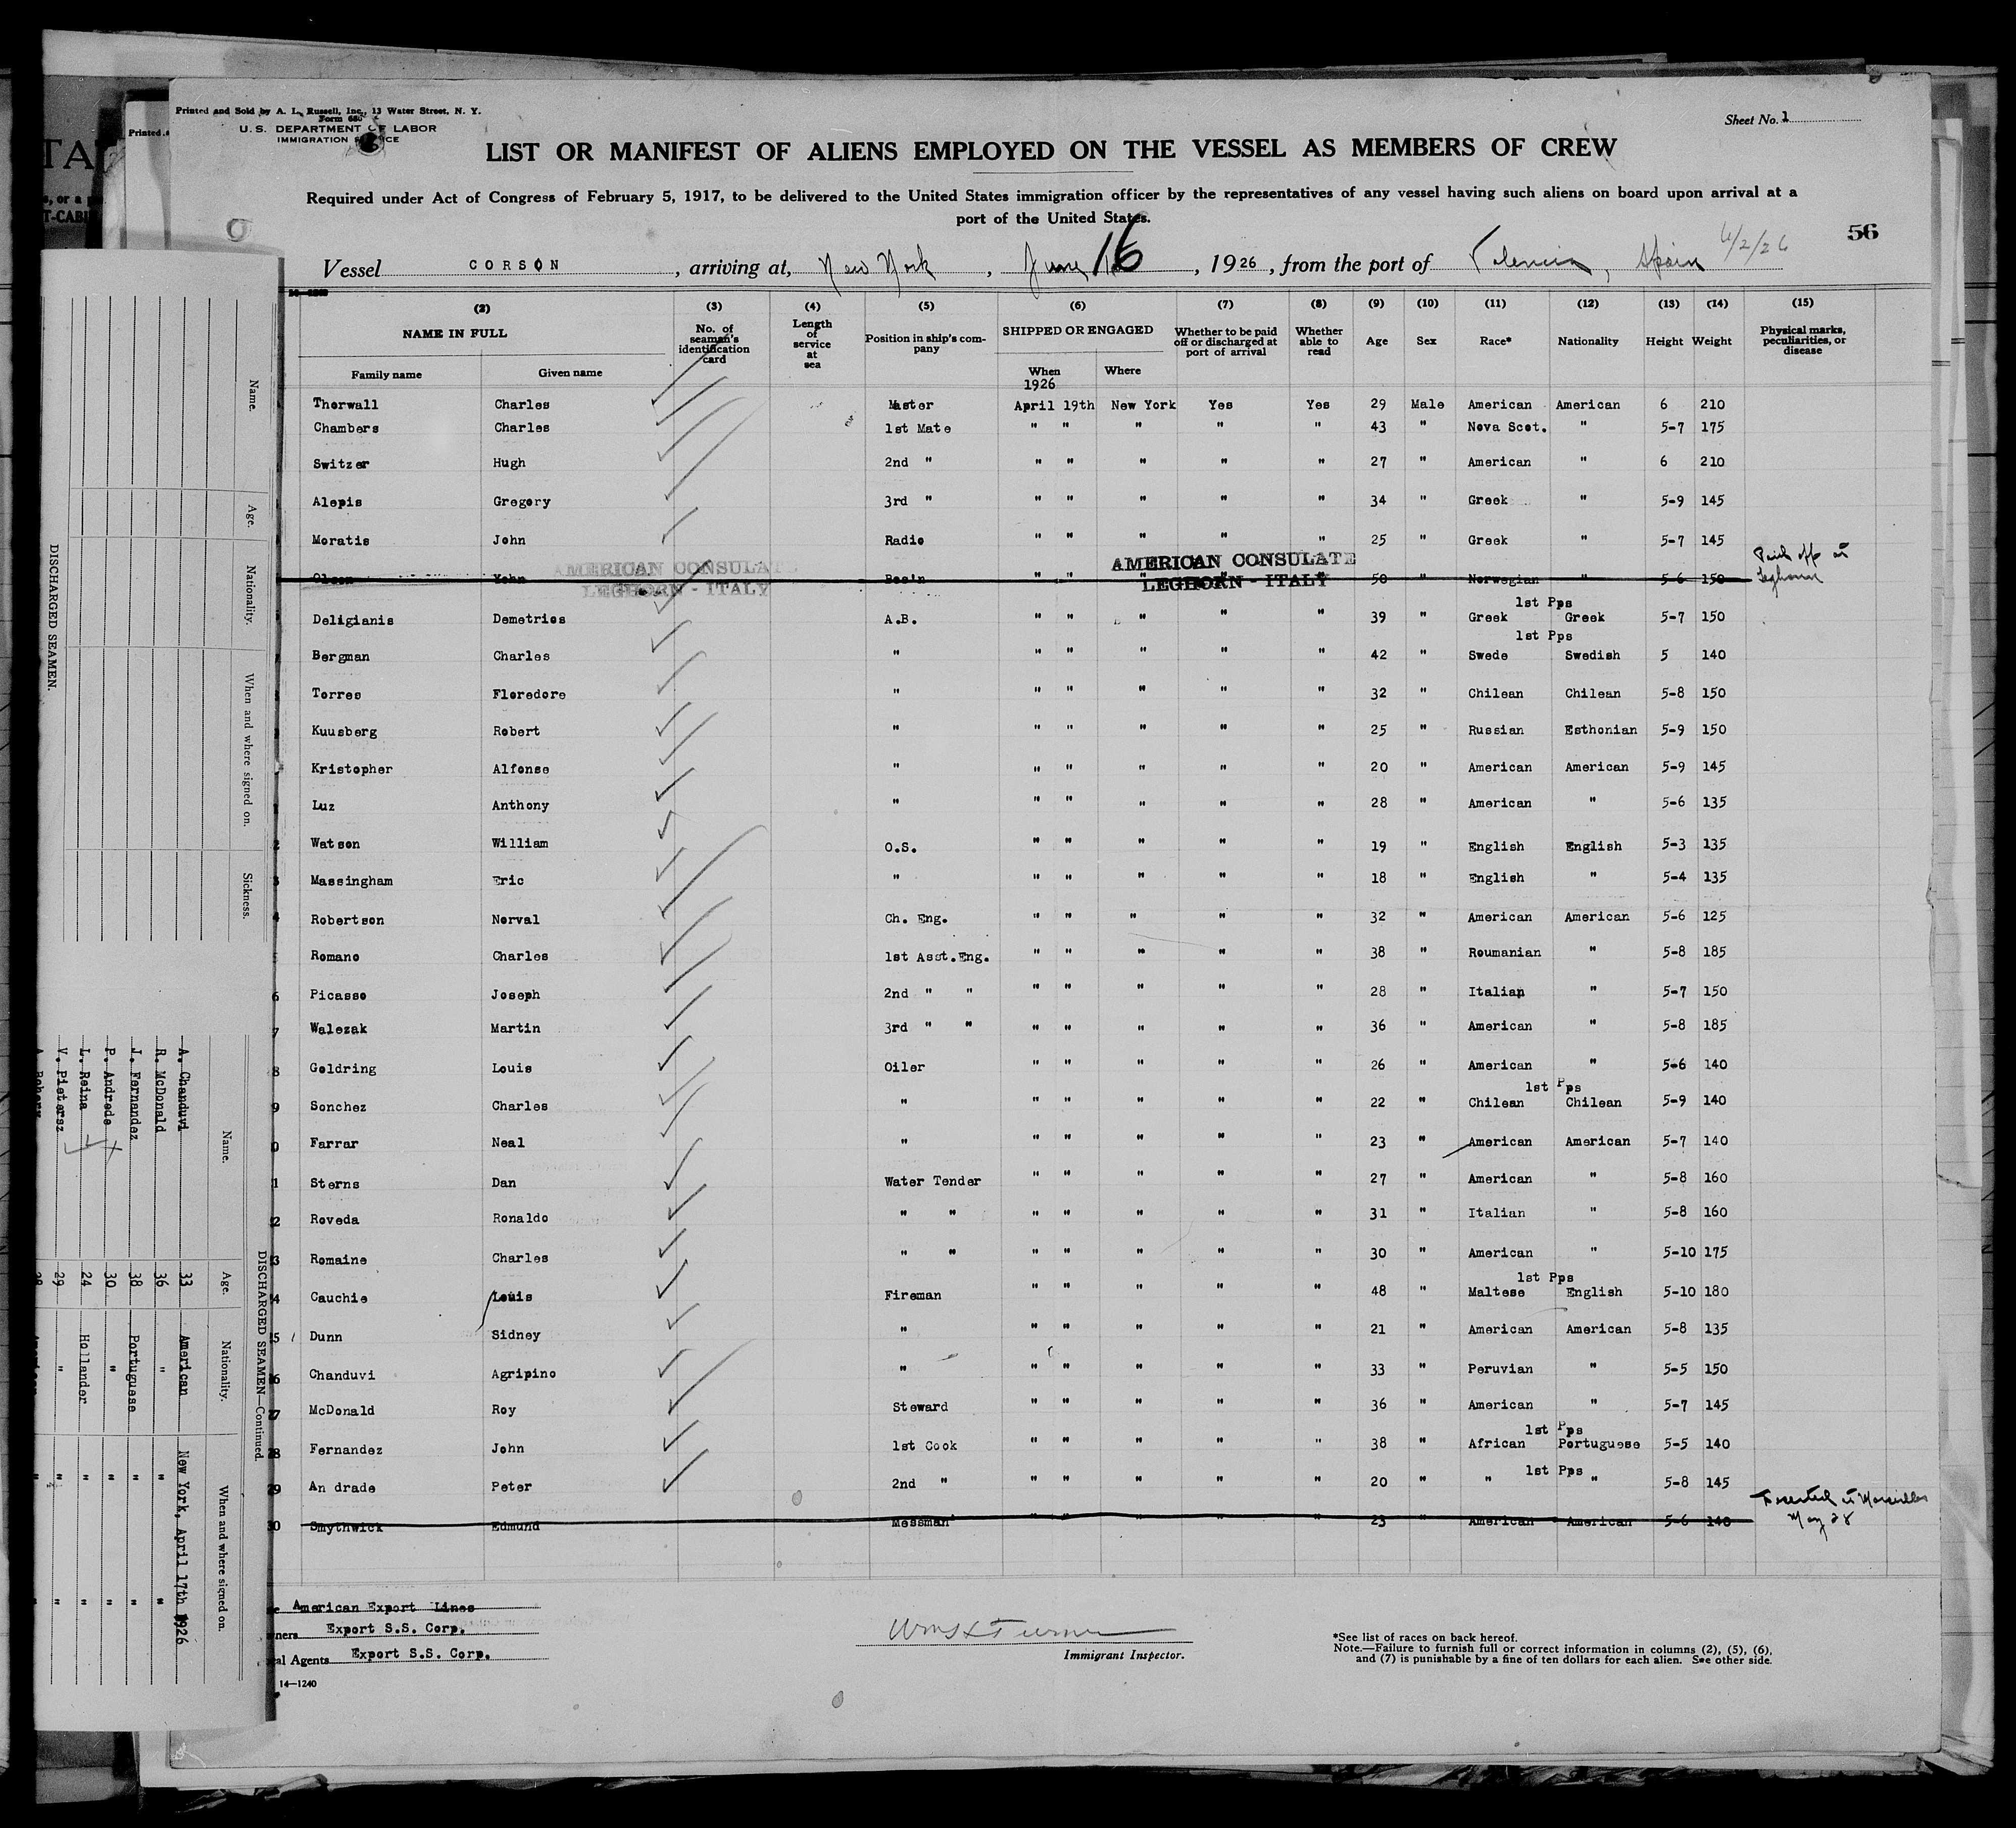 Printed and Sold by A. L. Russell, Inc., 13 Water Street, N. Y.
Form 680
U. S. DEPARTMENT OF LABOR
IMMIGRATION
Sheet No. 1
LIST OR MANIFEST OF ALIENS EMPLOYED ON THE VESSEL AS MEMBERS OF CREW
Required under Act of Congress of February 5, 1917, to be delivered to the United States immigration officer by the representatives of any vessel having such aliens on board upon arrival at a
port of the United States.
56
6/2/26
Vessel CORSON, arriving at, New York, June 16, 1926, from the port of Valencia, Spain
(2) (3) (4) (5) (6) (7) (8) (9) (10) (11) (12) (13) (14) (15)
NAME IN FULL
Family name Given name
No. of seaman's identification card
Length of service at sea
Position in ship's company
SHIPPED OR ENGAGED
When 1926 Where
Whether to be paid off or discharged at port of arrival
Whether able to read
Age Sex Race* Nationality Height Weight
Physical marks, peculiarities, or disease
Thorwall Charles Master April 19th New York Yes Yes 29 Male American American 6 210
Chambers Charles 1st Mate " " " " " 43 " Nova Scot. " 5-7 175
Switzer Hugh 2nd " " " " " " 27 " American " 6 210
Alepis Gregory 3rd " " " " " " 34 " Greek " 5-9 145
Moratis John Radio " " " " " 25 " Greek " 5-7 145
AMERICAN CONSULATE
LEGHORN - ITALY
AMERICAN CONSULATE
LEGHORN - ITALY
Olsen John Bos'n " " " " " 50 Norwegian " 5-6 150 Paid off at Leghorn
1st Pps
Deligianis Demetrios A.B. " " " " " 39 " Greek Greek 5-7 150
1st Pps
Bergman Charles " " " " " " 42 " Swede Swedish 5 140
Torres Floredore " " " " " " 32 " Chilean Chilean 5-8 150
Kuusberg Robert " " " " " " 25 " Russian Esthonian 5-9 150
Kristopher Alfonse " " " " " " 20 " American American 5-9 145
Luz Anthony " " " " " " 28 " American " 5-6 135
Watson William O.S. " " " " " 19 " English English 5-3 135
Massingham Eric " " " " " " 18 " English " 5-4 135
Robertson Norval Ch. Eng. " " " " " 32 " American American 5-6 125
Romano Charles 1st Asst.Eng. " " " " " 38 " Roumanian " 5-8 185
Picasso Joseph 2nd " " " " " " " 28 " Italian " 5-7 150
Walezak Martin 3rd " " " " " " " 36 " American " 5-8 185
Goldring Louis Oiler " " " " " 26 " American " 5-6 140
1st Pps
Sonchez Charles " " " " " " 22 " Chilean Chilean 5-9 140
Farrar Neal " " " " " " 23 " American American 5-7 140
Sterns Dan Water Tender " " " " " 27 " American " 5-8 160
Roveda Ronaldo " " " " " " " 31 " Italian " 5-8 160
Romaine Charles " " " " " " " 30 " American " 5-10 175
1st Pps
Cauchie Louis Fireman " " " " " 48 " Maltese English 5-10 180
Dunn Sidney " " " " " " 21 " American American 5-8 135
Chanduvi Agripino " " " " " " 33 " Peruvian " 5-5 150
McDonald Roy Steward " " " " " 36 " American " 5-7 145
1st Pps
Fernandez John 1st Cook " " " " " 38 " African Portuguese 5-5 140
1st Pps
An drade Peter 2nd " " " " " " 20 " " " 5-8 145
Smythwick Edmund Messman " " " " " 23 " American American 5-6 140 Deserted at Marseilles May 28
American Export Lines
Export S.S. Corp.
al Agents Export S.S. Corp.
14—1240
Immigrant Inspector.
*See list of races on back hereof.
Note.—Failure to furnish full or correct information in columns (2), (5), (6),
and (7) is punishable by a fine of ten dollars for each alien. See other side.
DISCHARGED SEAMEN.
Name. Age. Nationality. When and where signed on. Sickness.
DISCHARGED SEAMEN—Continued.
Name. Age. Nationality. When and where signed on.
A. Chanduvi 33 American New York, April 17th 1926
R. McDonald 36 " " "
J. Fernandez 38 Portuguese " "
P. Andrede 30 " " "
L. Reina 24 Hollander " "
V. Pietersz 29 " " "